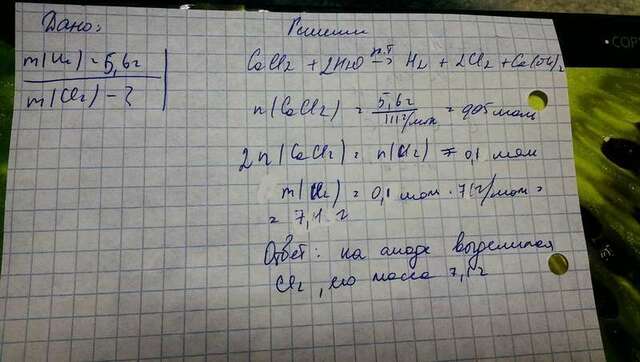 Дано:
m(Cl₂) = 5,6г
m(Cl₂) - ?
Решение
CaCl₂ + 2H₂O → H₂ + 2Cl₂ + Ca(OH)₂
n(CaCl₂) = 5,6г / 111г/моль = 0,05 моль
2n(CaCl₂) = n(Cl₂) = 0,1 моль
m(Cl₂) = 0,1 моль · 71г/моль =
= 7,1 г
Ответ: на аноде выделился
Cl₂, его масса 7,1г
COP